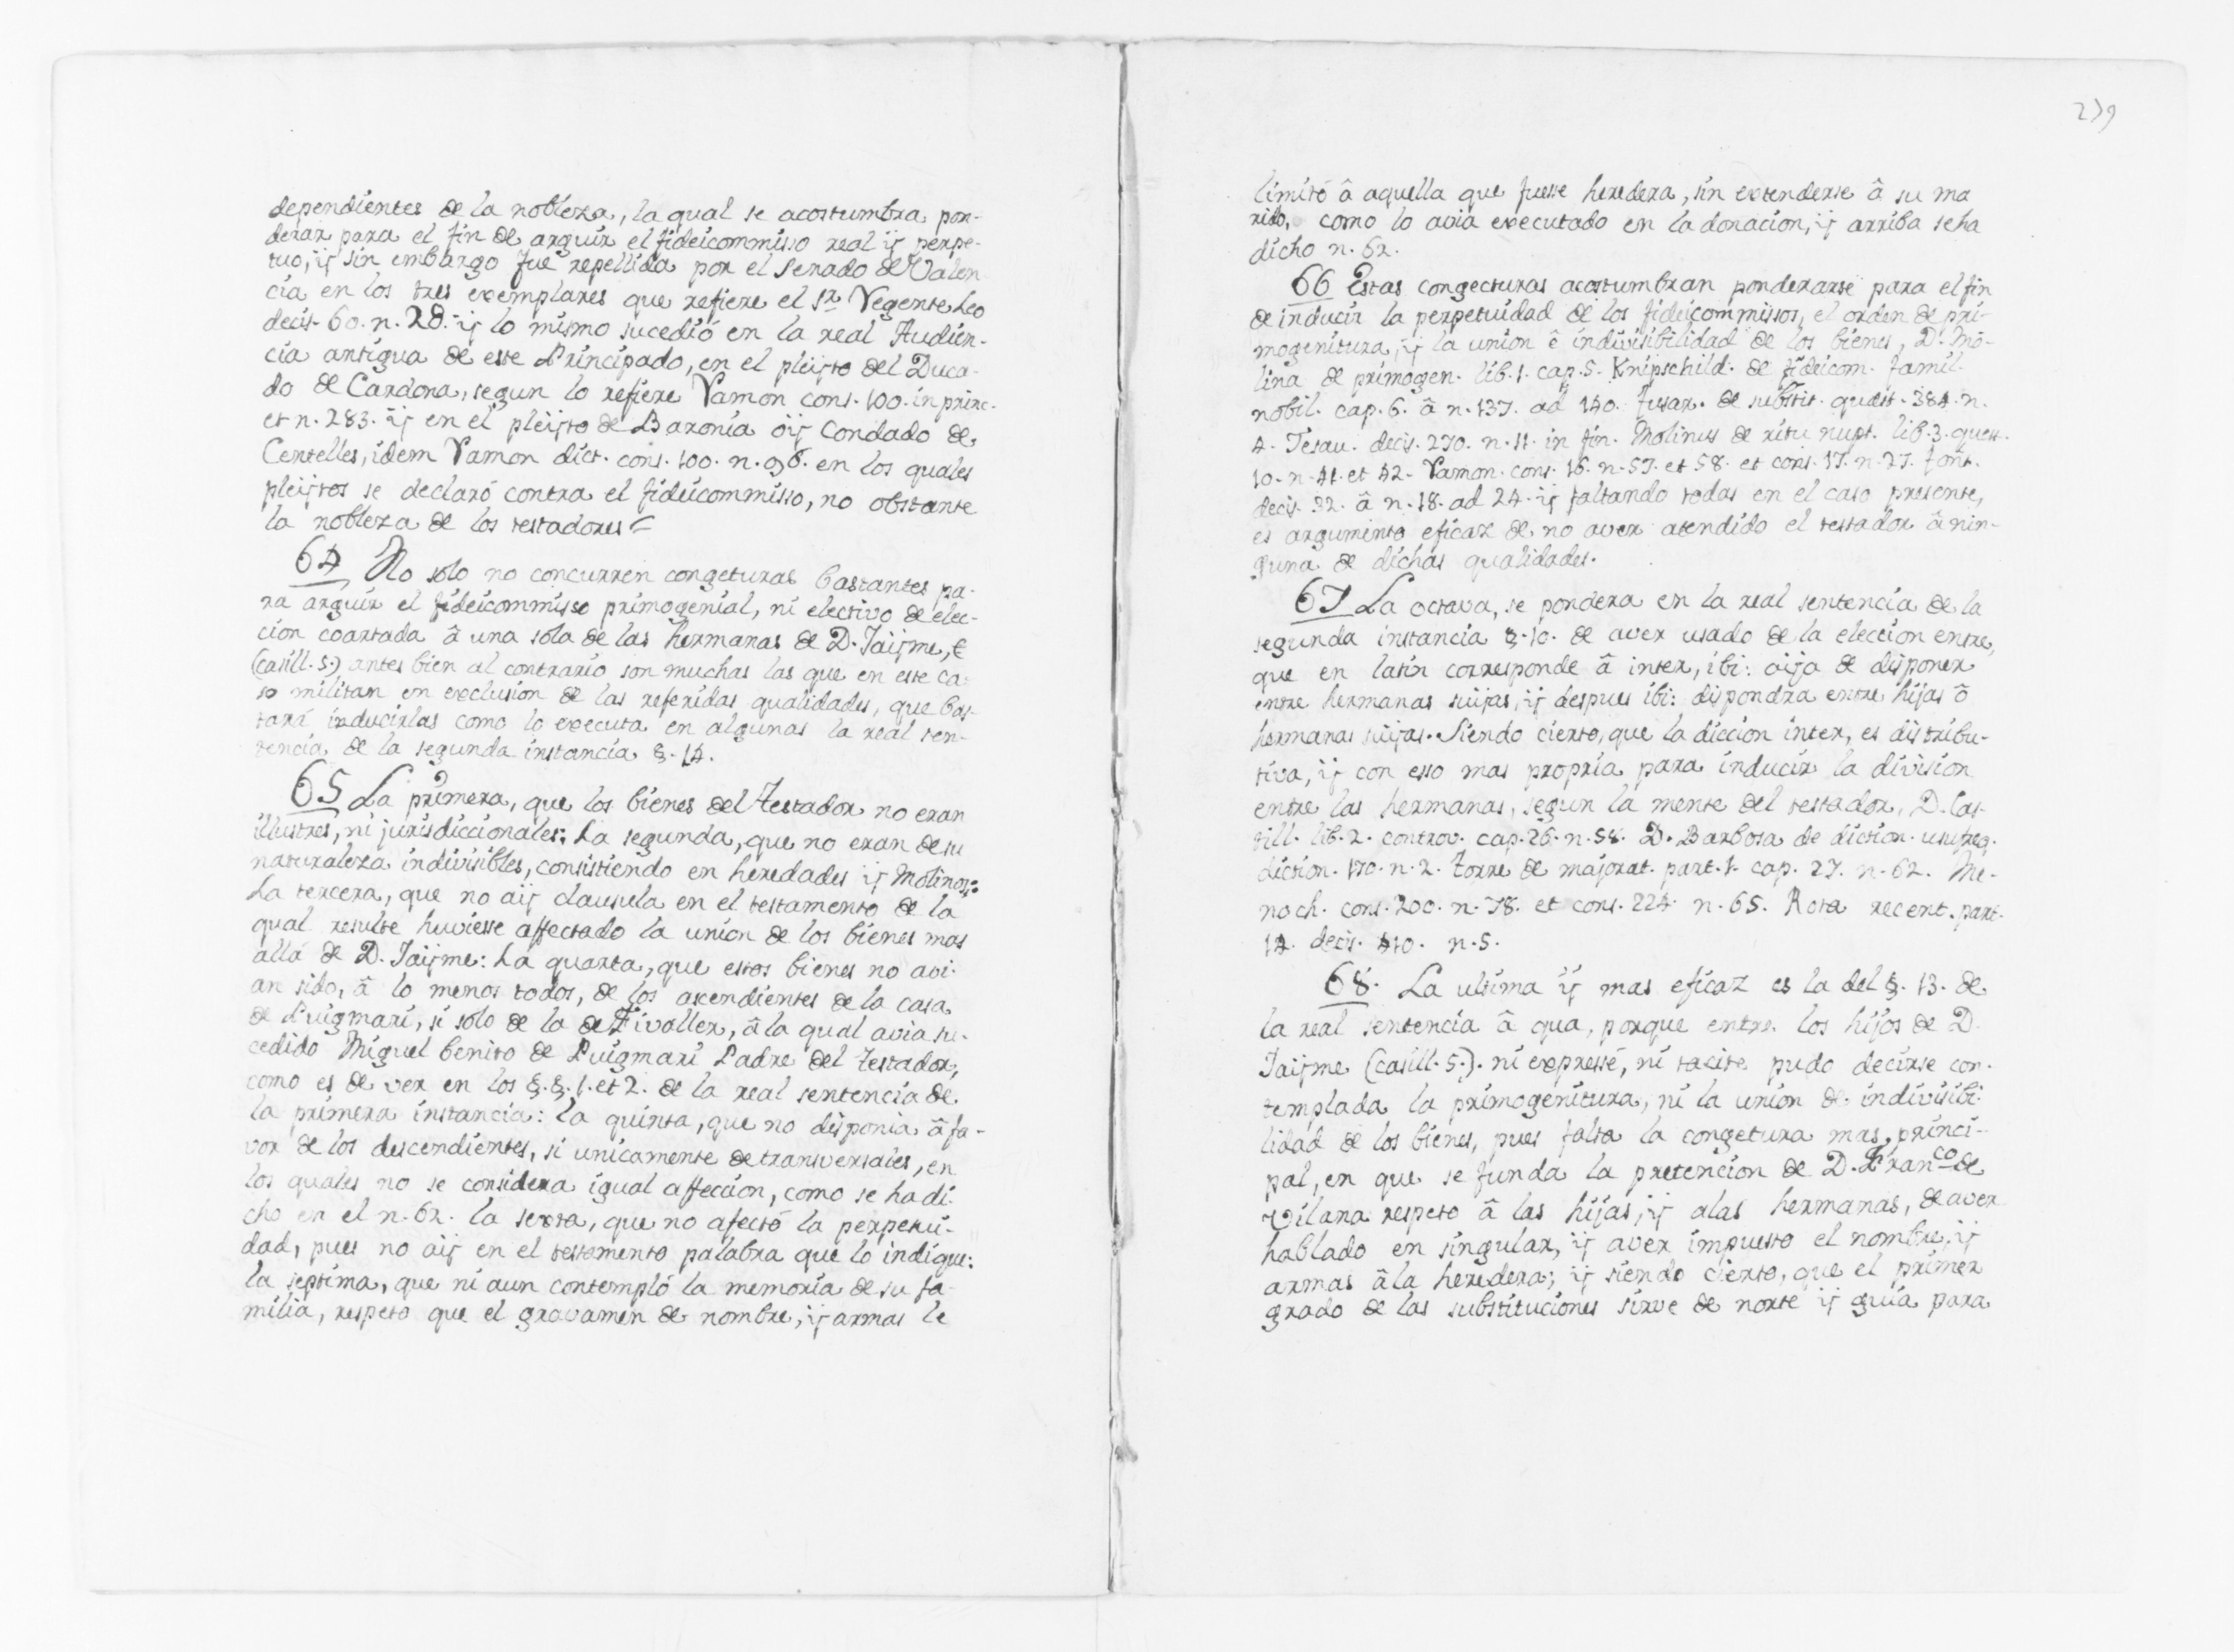 dependientes de la nobleza, la qual se acostumbra pon-
derar para el fin de arguir el fideicommisso real ÿ perpe-
tuo, ÿ sin embargo fue repellida por el Senado de Valen
cia en los tres exemplares que refiere el Sr. Regente Leo
decis. 60. n. 28. ÿ lo mismo sucedió en la real Audien-
cia antigua de este Principado, en el pleÿto del Duca-
do de Cardona, segun lo refiere Ramon cons. 100. in princ.
et n. 283. ÿ en el pleÿto de Baronía óÿ Condado de
Centelles, idem Ramon dict. cons. 100. n. 96. en los quales
pleÿtos se declaró contra el fideicommisso, no obstante
la nobleza de los testadores =
64 No solo no concurren congeturas bastantes pa-
ra arguir el fideicommisso primogenial, ni electivo de elec-
cion coartada â una sola de las hermanas de D. Jaÿme,
(casill. 5.) antes bien al contrario son muchas las que en este ca-
so militan en exclusion de las referidas qualidades, que bas-
tará inducirlas como lo executa en algunas la real sen-
tencia de la segunda instancia §. 14.
65 La primera, que los bienes del Testador no eran
illustres, ni jurisdiccionales: La segunda, que no eran de su
naturaleza indivisibles, consistiendo en heredades ÿ Molinos:
La tercera, que no aÿ clausula en el testamento de la
qual resulte huviesse affectado la union de los bienes mas
allá de D. Jaÿme: La quarta, que estos bienes no avi-
an sido, â lo menos todos, de los ascendientes de la casa
de Puigmarí, si solo de la de Fivaller, â la qual avia su-
cedido Miguel Benito de Puigmarí Padre del Testador,
como es de ver en los §. §. 1. et 2. de la real sentencia de
la primera instancia: la quinta, que no disponia â fa-
vor de los descendientes, si unicamente de transversales, en
los quales no se considera igual affeccion, como se ha di-
cho en el n. 62. la sexta, que no afectó la perpetui-
dad, pues no aÿ en el testamento palabra que lo indique:
la septima, que ni aun contempló la memoria de su fa-
milia, respeto que el gravamen de nombre, ÿ armas le
239
limitó â aquella que fuesse heredera, sin extenderse â su ma
rido, como lo avia executado en la donacion, ÿ arriba se ha
dicho n. 62.
66 Estas congecturas acostumbran ponderarse para el fin
de inducir la perpetuidad de los fideicommissos, el orden de pri-
mogenitura, ÿ la union ê indivisibilidad de los bienes, D. Mo-
lina de primogen. lib. 1. cap. 5. Knipschild. de fideicom. famil.
nobil. cap. 6. â n. 137. ad 140. Fusar. de substit. quest. 384. n.
4. Tesau. decis. 270. n. 11. in fin. Molinus de ritu nupt. lib. 3. quest.
10. n. 41. et 42. Ramon. cons. 16. n. 57. et 58. et cons. 17. n. 27. Font.
decis. 32. â n. 18. ad 24. ÿ faltando todas en el caso presente,
es argumento eficaz de no aver atendido el testador â nin-
guna de dichas qualidades.
67 La octava, se pondera en la real sentencia de la
segunda instancia §. 10. de aver usado de la eleccion entre,
que en latin corresponde â inter, ibi: aÿa de disponer
entre hermanas suÿas, ÿ despues ibi: dispondra entre hijas ô
hermanas suÿas. Siendo cierto, que la diccion inter, es distribu-
tiva, ÿ con esso mas propria para inducir la division
entre las hermanas, segun la mente del testador, D. Cas-
till. lib. 2. controv. cap. 26. n. 58. D. Barbosa de diction. usufreq.
diction. 170. n. 2. Torre de majorat. part. 1. cap. 27. n. 62. Me-
noch. cons. 200. n. 78. et cons. 224. n. 65. Rota recent. part.
14. decis. 410. n. 5.
68. La ultima ÿ mas eficaz es la del §. 13. de
la real sentencia â qua, porque entre los hijos de D.
Jaÿme (casill. 5.). ni expressé, ni tacite pudo decirse con-
templada la primogenitura, ni la union de indivisibi-
lidad de los bienes, pues falta la congetura mas princi-
pal, en que se funda la pretencion de D. Franco de
Vilana respeto â las hijas, ÿ alas hermanas, de aver
hablado en singular, ÿ aver impuesto el nombre, ÿ
armas â la heredera; ÿ siendo cierto, que el primer
grado de las substituciones sirve de norte ÿ guia para